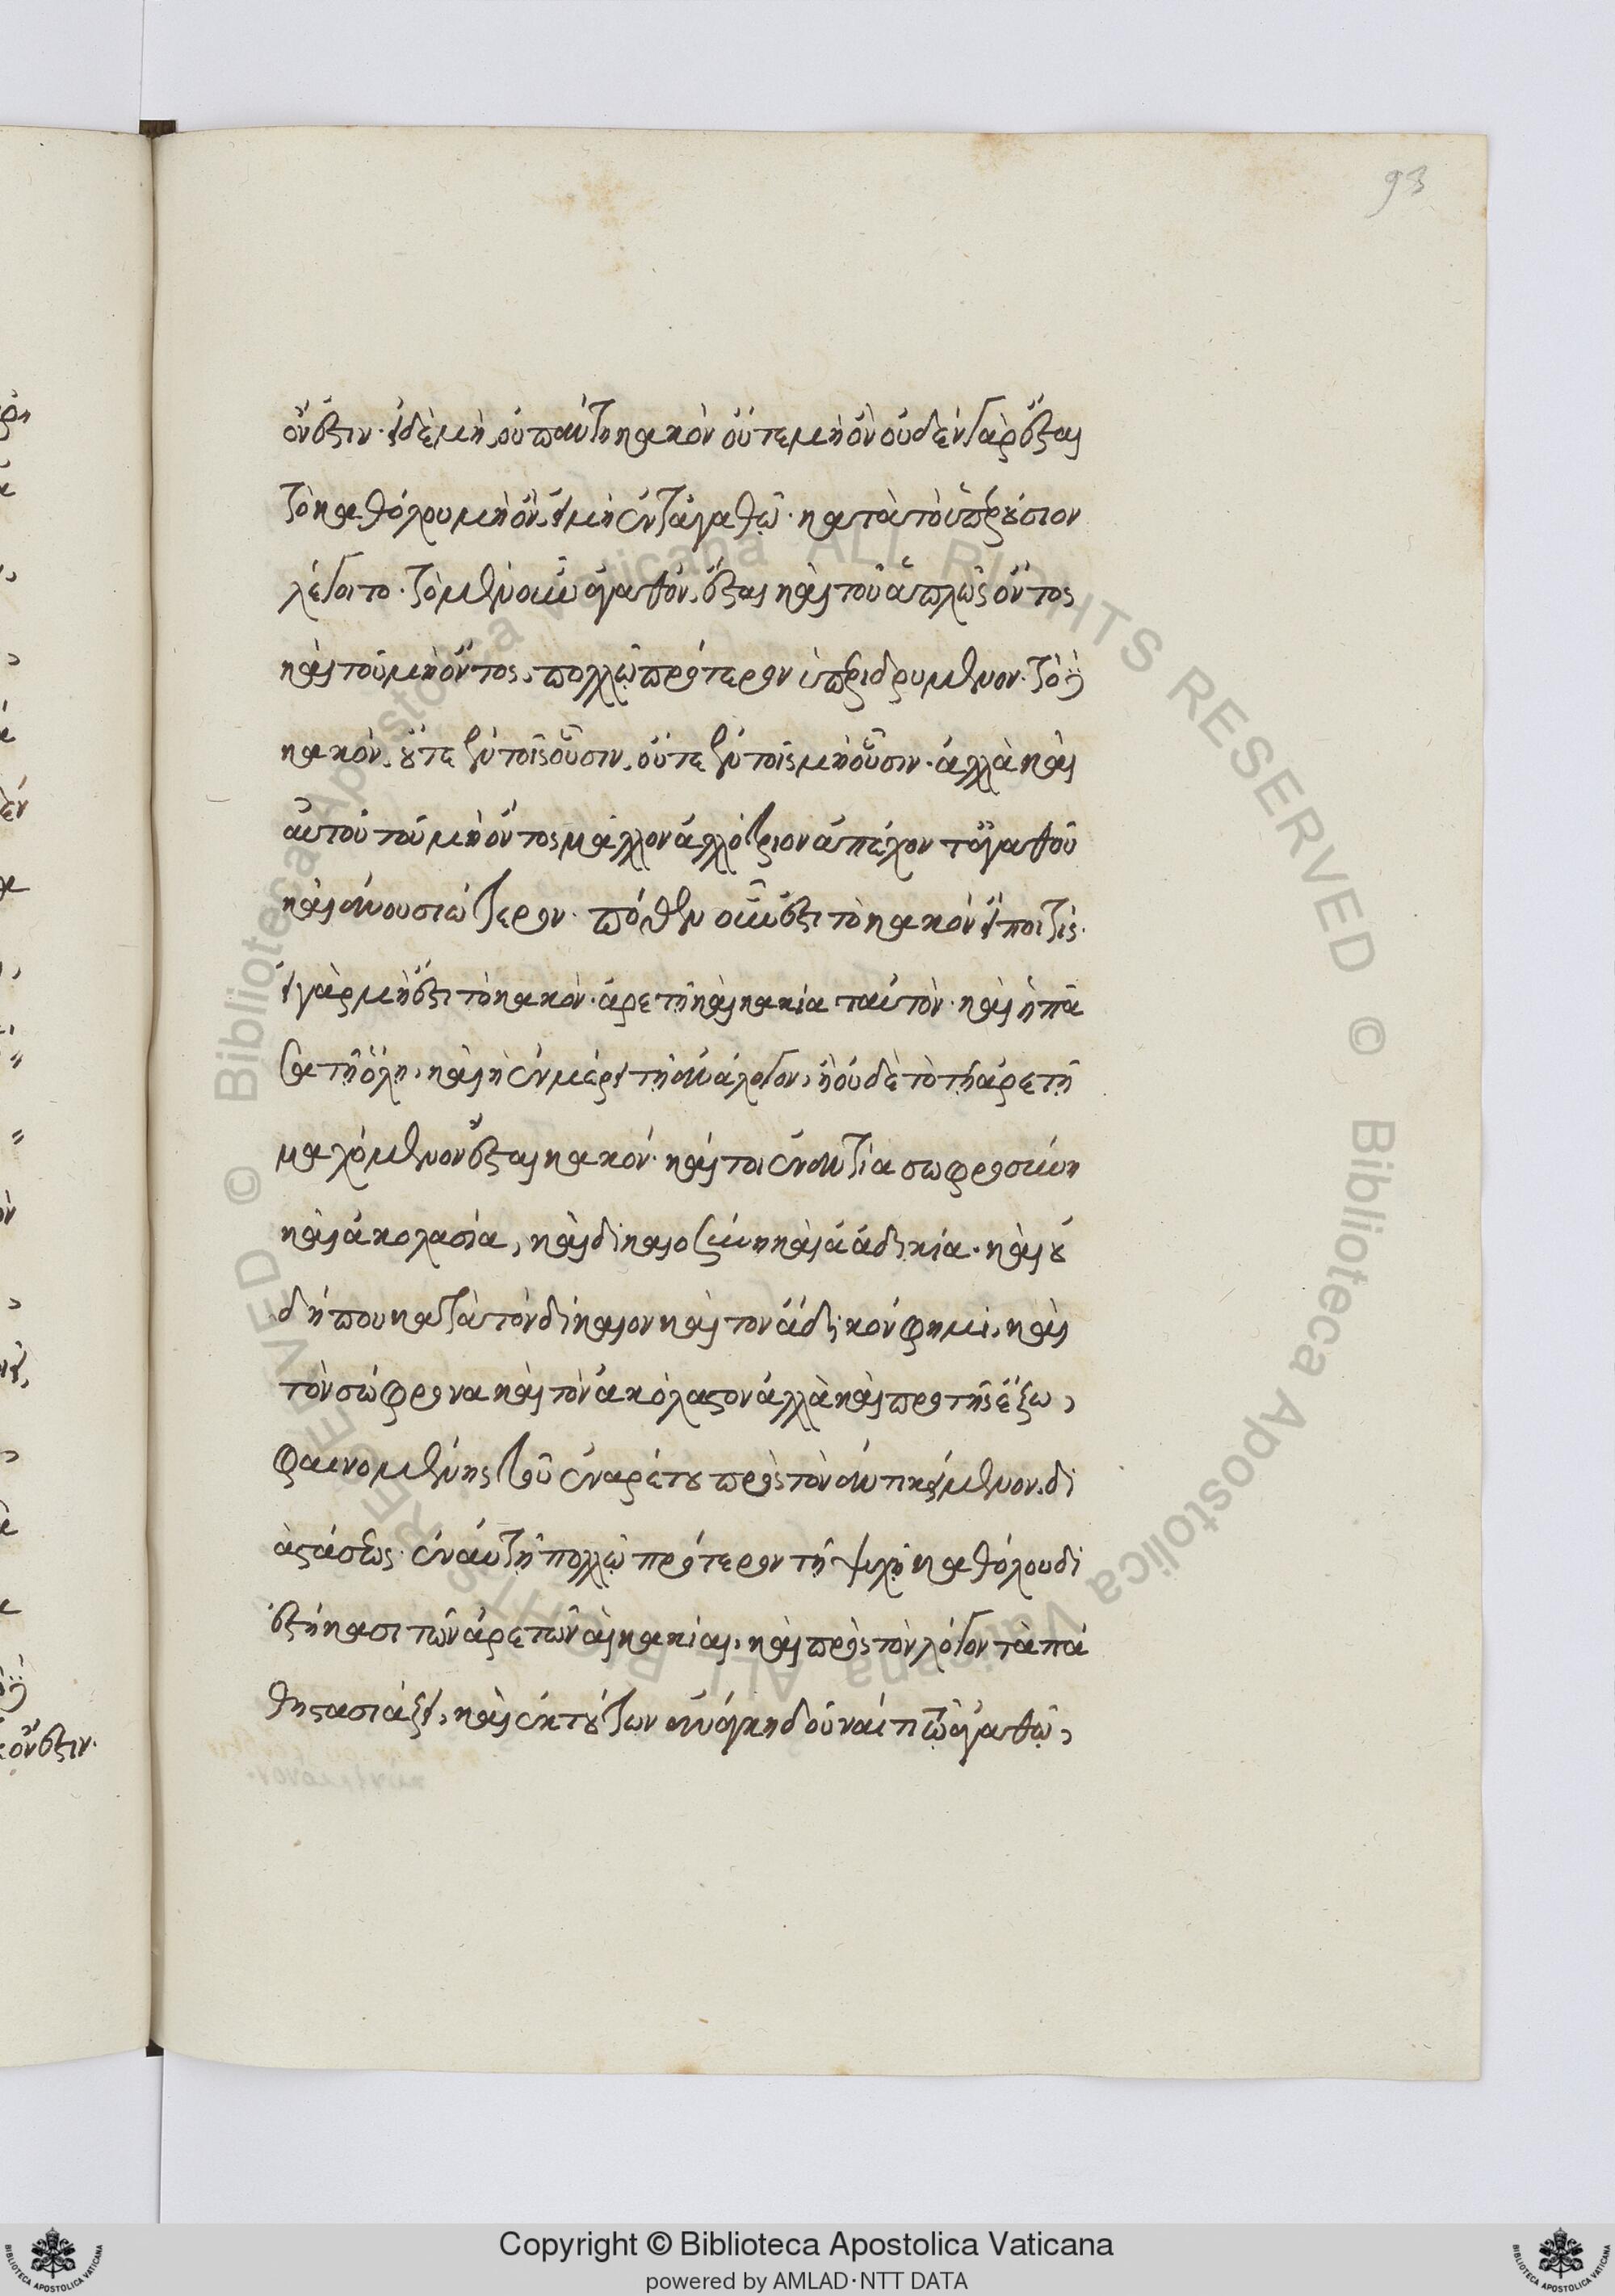 93
ὄν ἐστιν· εἰ δὲ μὴ, οὐ πάντη κακὸν οὔτε μὴ ὂν οὐδὲν γὰρ ἔσται
τὸ καθόλου μὴ ὂν, εἰ μὴ ἐν τἀγαθῷ κατὰ τὸ ὑπερούσιον
λέγοιτο. τὸ μὲν οὖν ἀγαθὸν, ἔσται καὶ τοῦ ἁπλῶς ὄντος
καὶ τοῦ μὴ ὄντος, πολλῷ πρότερον ὑπεριδρυμένον. τὸ δὲ
κακὸν, οὔτε ἐν τοῖς οὖσιν, οὔτε ἐν τοῖς μὴ οὖσιν. ἀλλὰ καὶ
αὐτοῦ τοῦ μὴ ὄντος μᾶλλον ἀλλότριον ἀπέχον τἀγαθοῦ
καὶ ἀνουσιώτερον. πόθεν οὖν ἐστι τὸ κακὸν εἴποι τίς.
εἰ γὰρ μὴ ἔστι τὸ κακὸν. ἀρετὴ καὶ κακία ταὐτὸν. καὶ ἡ πᾶ
σα τῇ ὅλῃ, καὶ ἡ ἐν μέρει τῇ ἀνάλογον, ἢ οὐδὲ τὸ τῇ ἀρετῇ
μαχόμενον ἔσται κακόν. καί τοι ἐναντία σωφροσύνη
καὶ ἀκολασία, καὶ δικαιοσύνη καὶ ἀδικία. καὶ οὐ
δήπου κατὰ τὸν δίκαιον καὶ τὸν ἄδικόν φημι, καὶ
τὸν σώφρονα καὶ τὸν ἀκόλαστον ἀλλὰ καὶ πρὸ τῆς ἔξω,
φαινομένης τοῦ ἐναρέτου πρὸς τὸν ἀντικείμενον. δι
αστάσεως. ἐν αὐτῇ πολλῷ πρότερον τῇ ψυχῇ καθόλου δι
εστήκασι τῶν ἀρετῶν αἱ κακίαι, καὶ πρὸς τὸν λόγον τὰ πά
θη στασιάζει, καὶ ἐκ τούτων ἀνάγκη δοῦναί τι τῷ ἀγαθῷ,
ὄν ἐστιν.
Copyright © Biblioteca Apostolica Vaticana
powered by AMLAD·NTT DATA